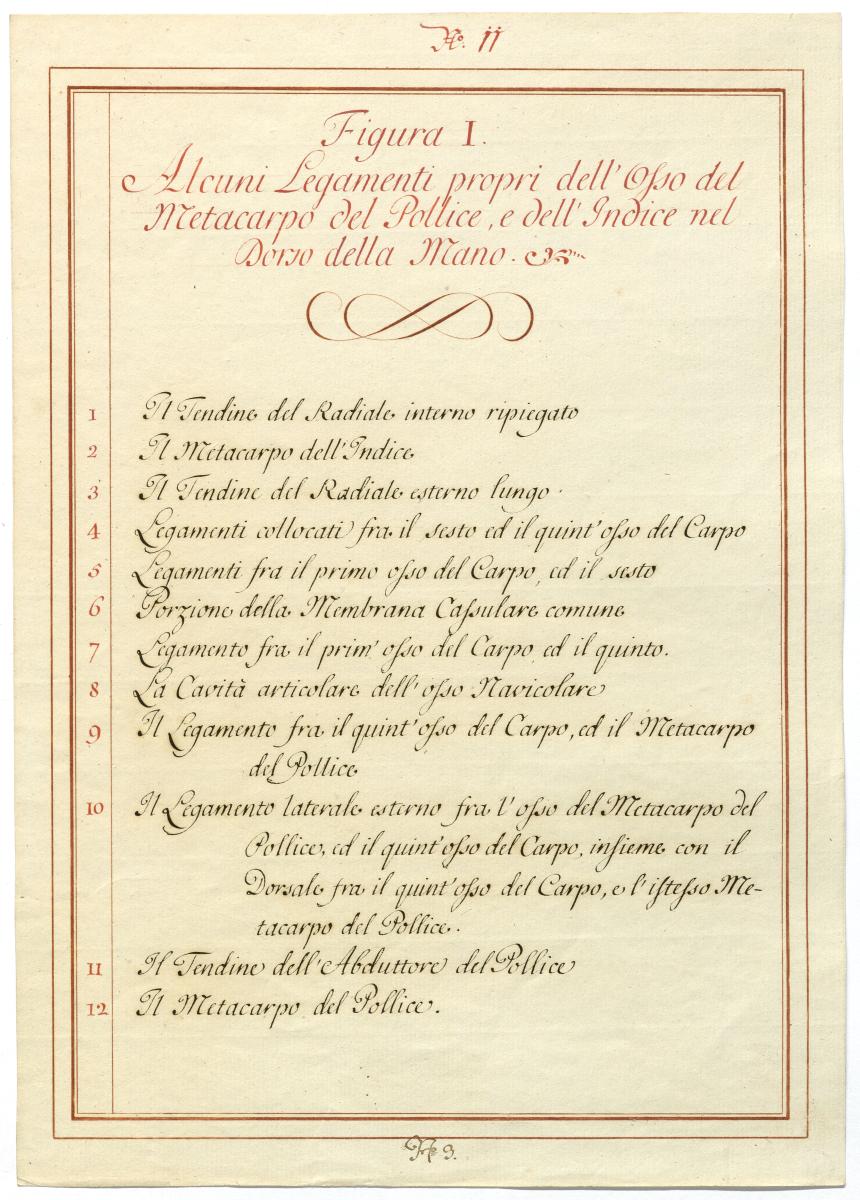 No. 11
Figura I.
Alcuni Legamenti propri dell'Osso del
Metacarpo del Pollice, e dell'Indice nel
Dorso della Mano.
1 Il Tendine del Radiale interno ripiegato
2 Il Metacarpo dell'Indice
3 Il Tendine del Radiale esterno lungo.
4 Legamenti collocati fra il sesto ed il quint'osso del Carpo
5 Legamenti fra il primo osso del Carpo, ed il sesto
6 Porzione della Membrana Cassulare comune
7 Legamento fra il prim'osso del Carpo ed il quinto.
8 La Cavità articolare dell'osso Navicolare
9 Il Legamento fra il quint'osso del Carpo, ed il Metacarpo
del Pollice
10 Il Legamento laterale esterno fra l'osso del Metacarpo del
Pollice, ed il quint'osso del Carpo, insieme con il
Dorsale fra il quint'osso del Carpo, e l'istesso Me-
tacarpo del Pollice.
11 Il Tendine dell'Abduttore del Pollice
12 Il Metacarpo del Pollice.
No 3.